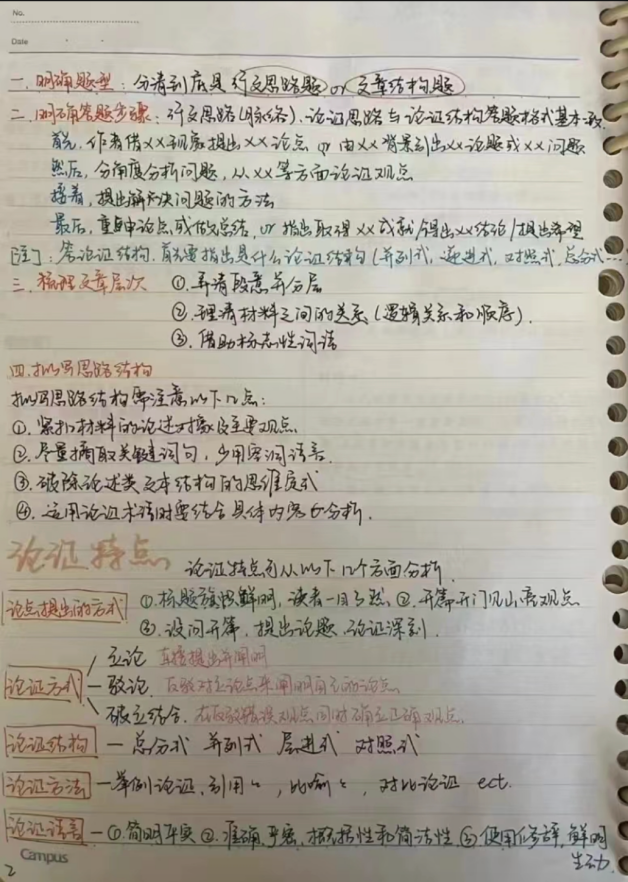 No.
Date
一.明确题型：分清到底是行文思路题 or 文章结构题
二.明确答题步骤：行文思路(脉络).论证思路与论证结构答题格式基本一致.
首先,作者借××现象提出××论点 or 由××背景引出××论题或××问题
然后,分角度分析问题,从××等方面论证观点
接着,提出解决问题的方法
最后,重申论点或做总结,or 指出取得××成就/得出××结论/提出希望
[注]:答论证结构,首先要指出是什么论证结构(并列式,递进式,对照式,总分式…
三.梳理文章层次 ①.弄清段意并分层
②.理清材料之间的关系(逻辑关系和顺序).
③.借助标志性词语
四.拟写思路结构
拟写思路结构需注意以下几点:
①.紧扣材料的论述对象及主要观点
②.尽量摘取关键词句,少用空洞语言.
③.破除论述类文本结构的思维定式
④.运用论证术语时要结合具体内容的分析.
论证特点 论证特点可从以下几个方面分析.
论点提出的方式 ①.标题旗帜鲜明,读者一目了然 ②.开篇开门见山亮观点
③.设问开篇,提出论题,论证深刻.
立论 直接提出并阐明
论证方式 - 驳论. 反驳对立论点来阐明自己的论点
破立结合. 在反驳错误观点同时确立正确观点.
论证结构 - 总分式 并列式 层进式 对照式
论证方法 - 举例论证,引用〃,比喻〃,对比论证 ect.
论证语言 - ①.简明平实 ②.准确,严密,概括性和简洁性 ③使用修辞,鲜明
生动.
Campus
2